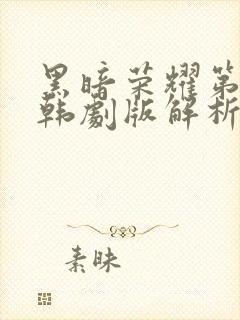 黑暗荣耀第
韩剧版解析
素昧